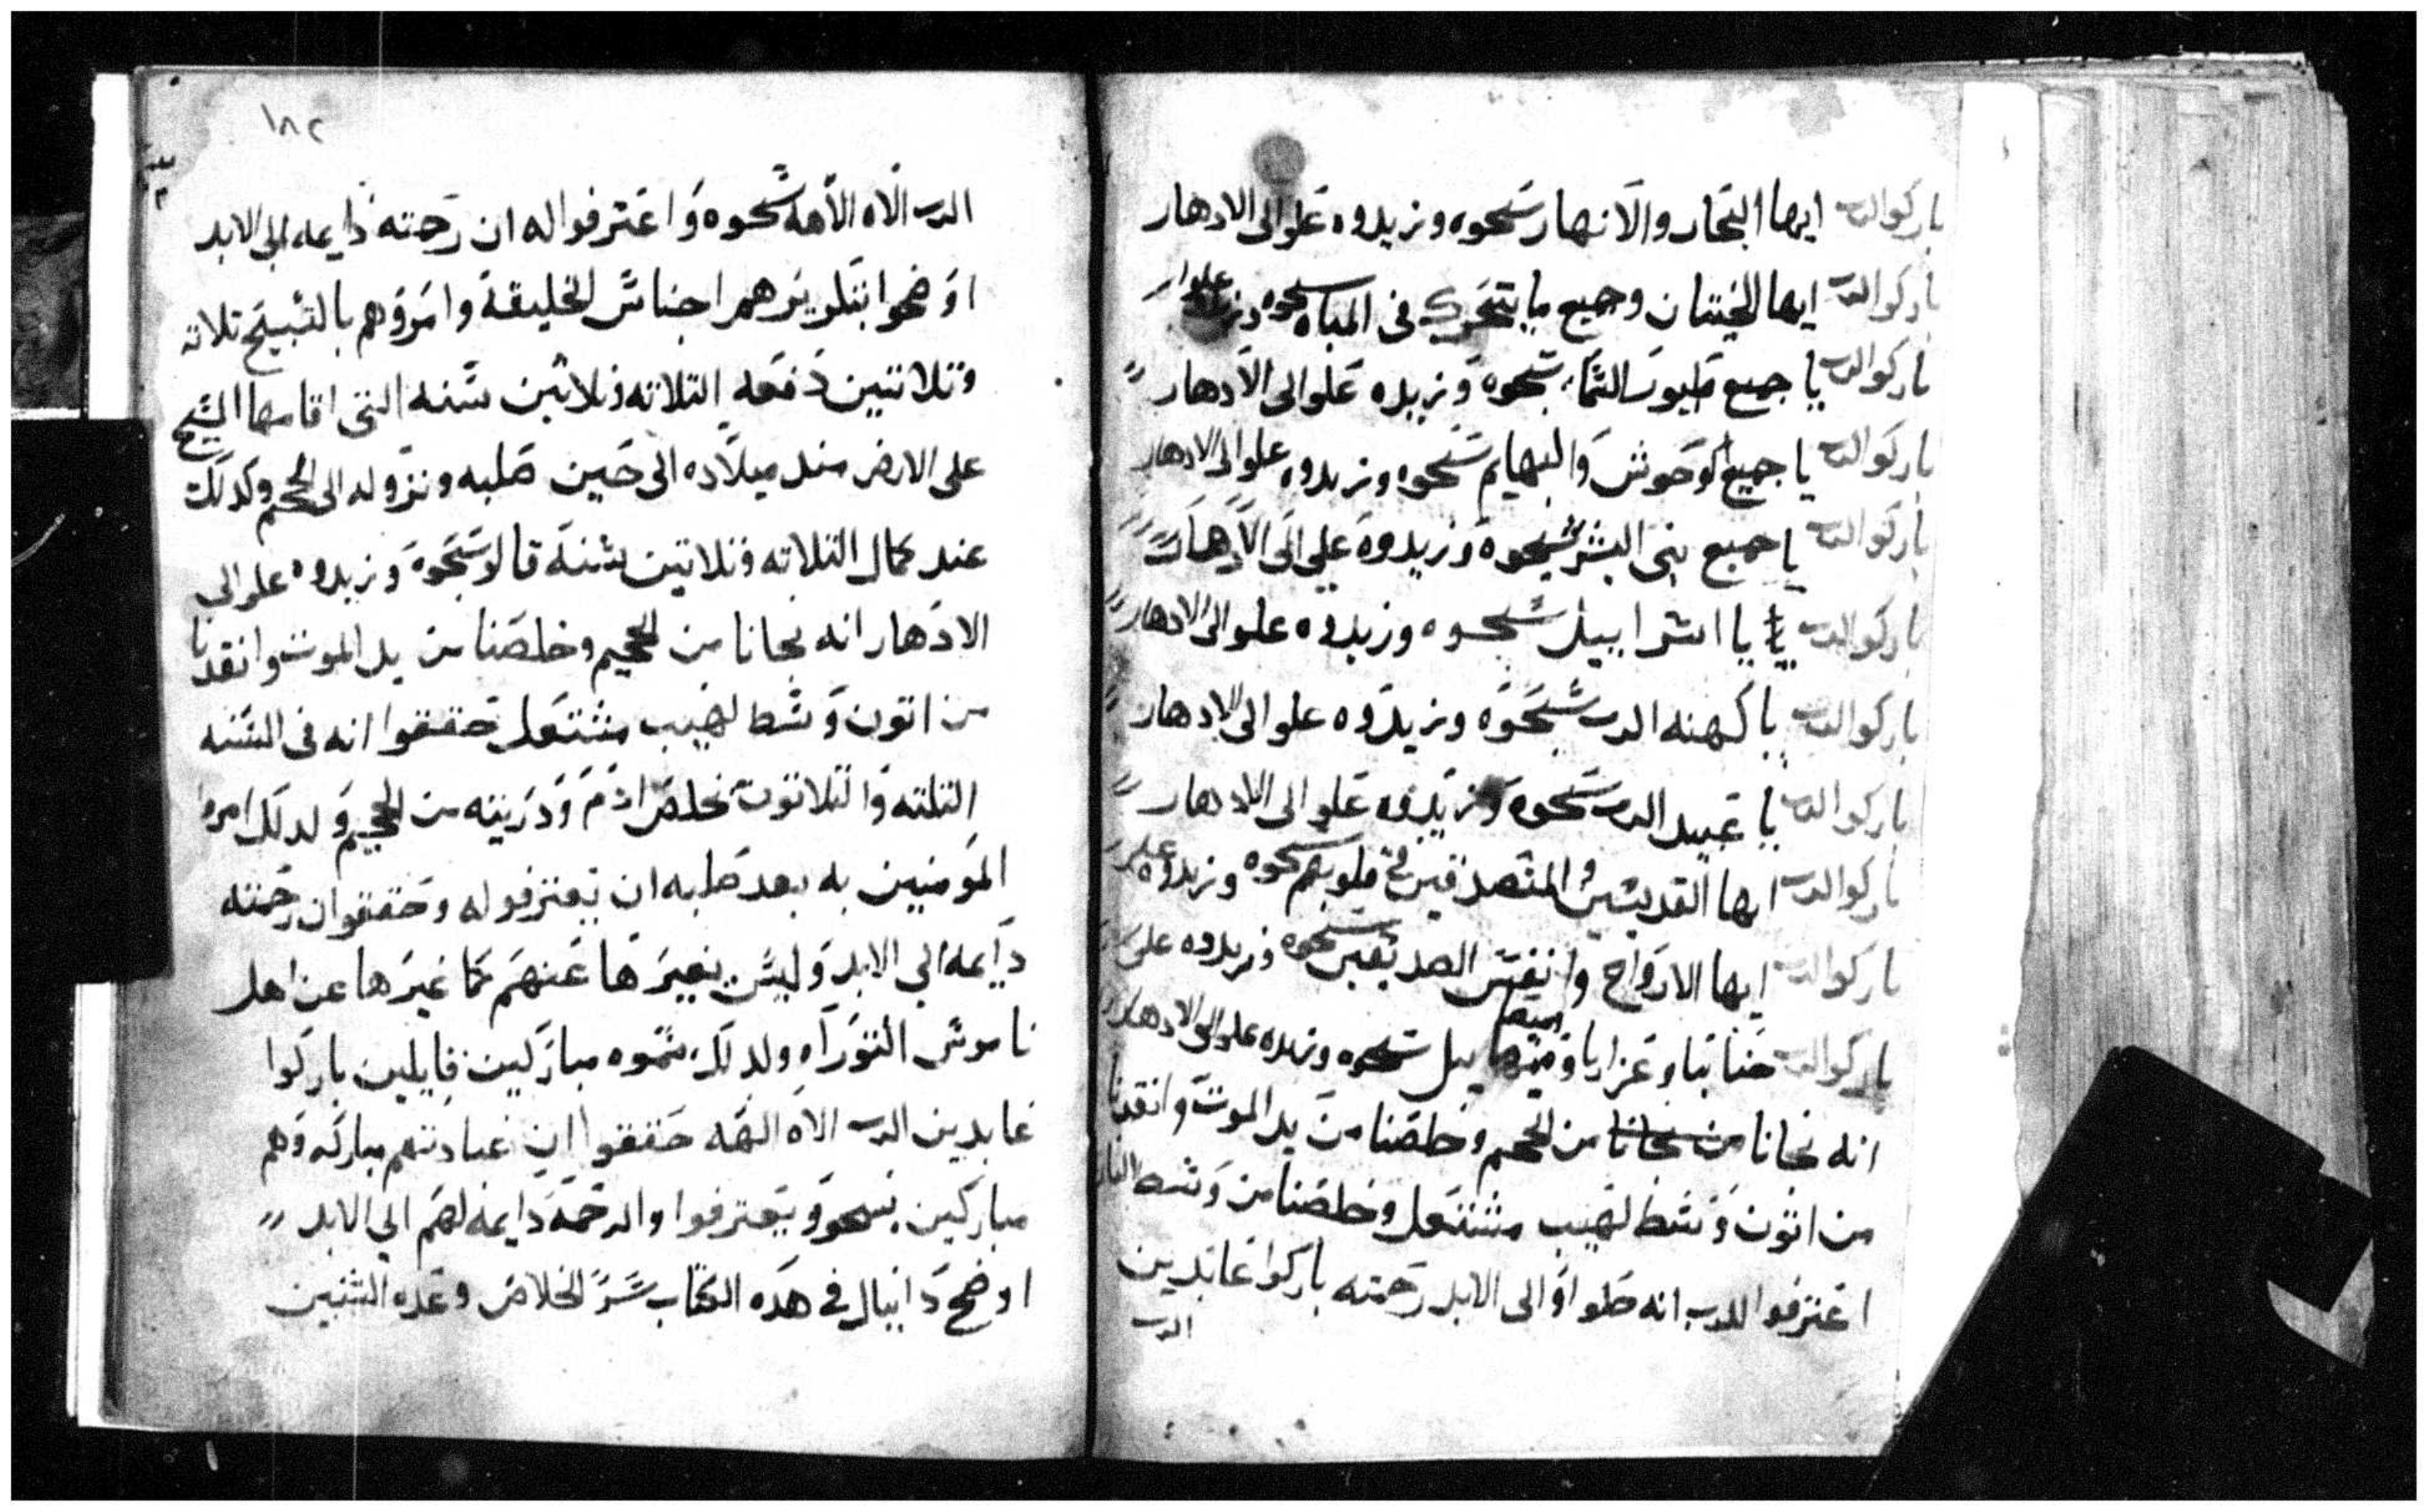 باركوا الرب ايها البحار والانهار سبحوه وزيدوه علو الى الادهار
باركوا الرب ايها الحيتان وجميع ما يتحرك في المياه سبحوه وزيدوه علوا
باركوا الرب يا جميع طيور السماء سبحوه وزيدوه علو الى الادهار
باركوا الرب يا جميع الوحوش والبهايم سبحوه وزيدوه علو الى الادهار
باركوا الرب يا جميع بني البشر سبحوه وزيدوه علي الى الادهار
باركوا الرب يا اسراييل سبحوه وزيدوه علو الى الادهار
باركوا الرب يا كهنه الرب سبحوه وزيدوه علو الى الادهار
باركوا الرب يا عبيد الرب سبحوه وزيدوه علو الى الادهار
باركوا الرب ايها القديسين والمتصدقين في قلوبهم سبحوه وزيدوه علو
باركوا الرب ايها الارواح وانفس الصديقين سبحوه وزيدوه علو
باركوا الرب حنانيا وعزاريا وميصاييل سبحوه وزيدوه علو الى الادهار
انه نجانا من نجانا من الجحيم وخلصنا من يد الموت وانقدنا
من اتون وسط لهيب مشتعل وخلصنا من وسط النار
اعترفوا للرب انه حلوا والى الابد رحمته باركوا عابدين
الرب
١٨٢
الرب الاه الالهه سبحوه واعترفوا له ان رحمته دايمه الى الابد
اوضحوا بتكريرهم اجناس الخليقة وامروهم بالتسبيح تلاته
وتلاتين دفعه التلاته وتلاتين سنه التي اقامها المسيح
على الارض مند ميلاده الى حين صلبه ونزوله الى الجحيم وكدلك
عند كمال التلاته وتلاتين سنة قالو سبحوه وزيدوه علو الى
الادهار انه نجانا من الجحيم وخلصنا من يد الموت وانقدنا
من اتون وسط لهيب مشتعل حققوا انه في السنه
التلته والتلاتون خلص ادم ودريته من الجحيم ولدلك امروا
المومنيين به بعد صلبه ان يعترفو له وحققو ان رحمته
دايمه الي الابد وليس يغيرها عنهم كما غيرها عن اهل
ناموس التوراه ولدلك سموه مباركين قايلين باركوا
عابدين الرب الاه الهه حققوا ان عبادتهم مباركه وهم
مباركين يسبحو ويعترفوا والرحمة دايمه لهم الي الابد
اوضح دانيال في هده الكتاب سر الخلاص وعده السنين